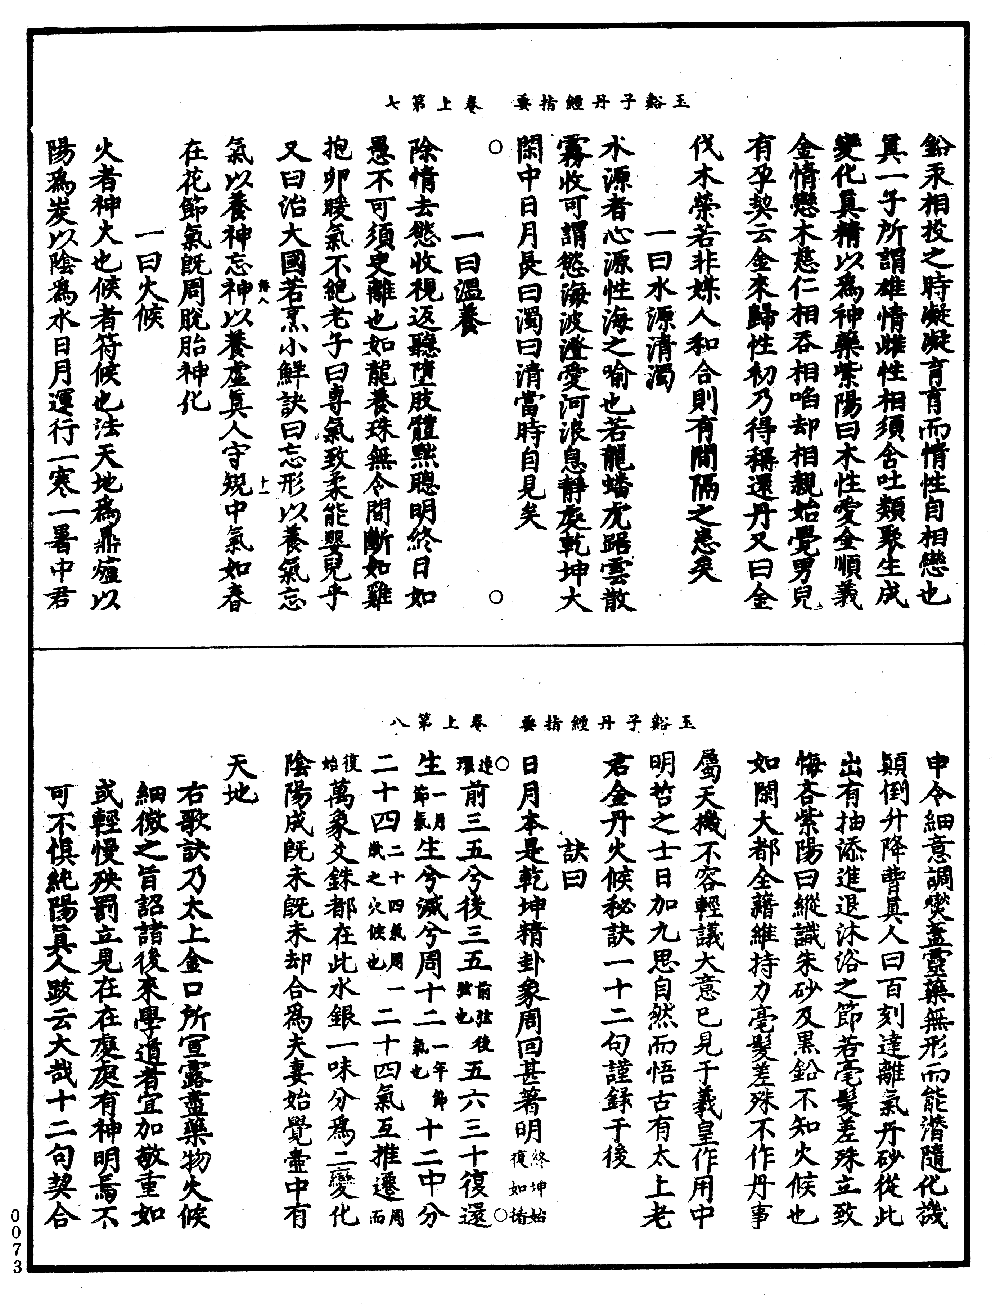 玉谿子丹經指要　卷上第七
鉛汞相投之時凝凝育育而情性自相戀也
真一子所謂雄情雌性相須含吐類聚生成
變化真精以為神藥紫陽曰木性愛金順義
金情戀木慈仁相吞相啗却相親始覺男兒
有孕契云金來歸性初乃得稱還丹又曰金
伐木榮若非媒人和合則有間隔之患矣
一曰水源清濁
水源者心源性海之喻也若龍蟠虎踞雲散
霧收可謂慾海波澄愛河浪息靜處乾坤大
閑中日月長曰濁曰清當時自見矣
○　○
一曰溫養
除情去慾收視返聽墮肢體黜聰明終日如
愚不可須臾離也如龍養珠無令間斷如雞
抱卵暖氣不絕老子曰專氣致柔能嬰兒乎
又曰治大國若烹小鮮訣曰忘形以養氣忘
氣以養神忘神以養虛真人守規中氣如春
十一
在花節氣既周脫胎神化
一曰火候
火者神火也候者符候也法天地為鼎爐以
陽為炭以陰為水日月運行一寒一暑中君
玉谿子丹經指要　卷上第八
申令細意調燮蓋靈藥無形而能潛隨化機
顛倒升降曹真人曰百刻達離氣丹砂從此
出有抽添進退沐浴之節若毫髮差殊立致
悔吝紫陽曰縱識朱砂及黑鉛不知火候也
如閑大都全藉維持力毫髮差殊不作丹事
屬天機不容輕議大意已見于羲皇作用中
明哲之士日加九思自然而悟古有太上老
君金丹火候秘訣一十二句謹錄于後
訣曰
日月本是乾坤精卦象周回甚著明終坤始復如循
○　○
連環前三五兮後三五前弦後弦也五六三十復還
生一月節氣生兮減兮周十二一年節氣也十二中分
二十四二十四氣周一歲之火候也二十四氣互推遷周而
復始萬象爻銖都在此水銀一味分為二變化
陰陽成既未既未却合為夫妻始覺壺中有
天地
右歌訣乃太上金口所宣露盡藥物火候
細微之旨詔諸後來學道者宜加敬重如
或輕慢殃罰立見在在處處有神明焉不
可不懼純陽真人跋云大哉十二句契合
0073